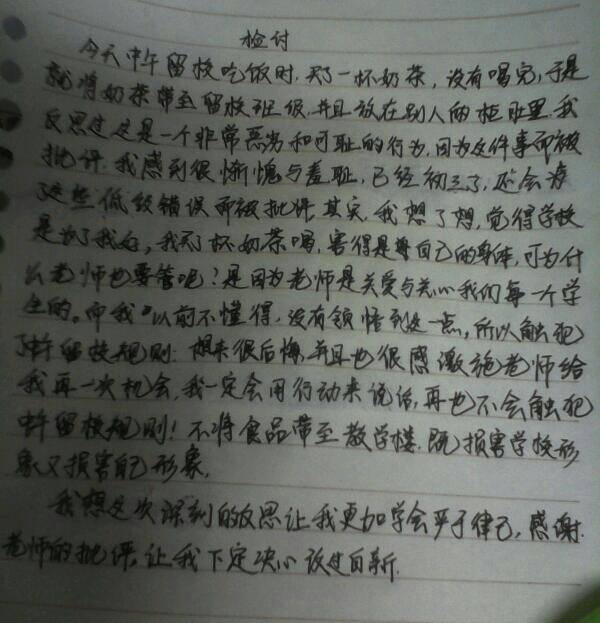 检付
今天中午留校吃饭时,买了一杯奶茶,没有喝完,于是
就将奶茶带至留校班级,并且放在别人的柜肚里.我
反思过这是一个非常恶劣和可耻的行为,因为这件事而被
批评.我感到很惭愧与羞耻,已经初三了,还会为
了这些低级错误而被批评.其实,我想了想,觉得学校
是为了我好,我买了杯奶茶喝,害得是我自己的身体,可为什
么老师也要管呢?是因为老师是关爱与关心我们每一个学
生的。而我以前不懂得,没有领悟到这一点,所以触犯
了中午留校规则.想来很后悔,并且也很感激老师给
我再一次机会,我一定会用行动来说话,再也不会触犯
中午留校规则!不将食品带至教学楼.既损害学校形
象又损害自己形象.
我想这次深刻的反思让我更加学会严于律己,感谢
老师的批评,让我下定决心改过自新.